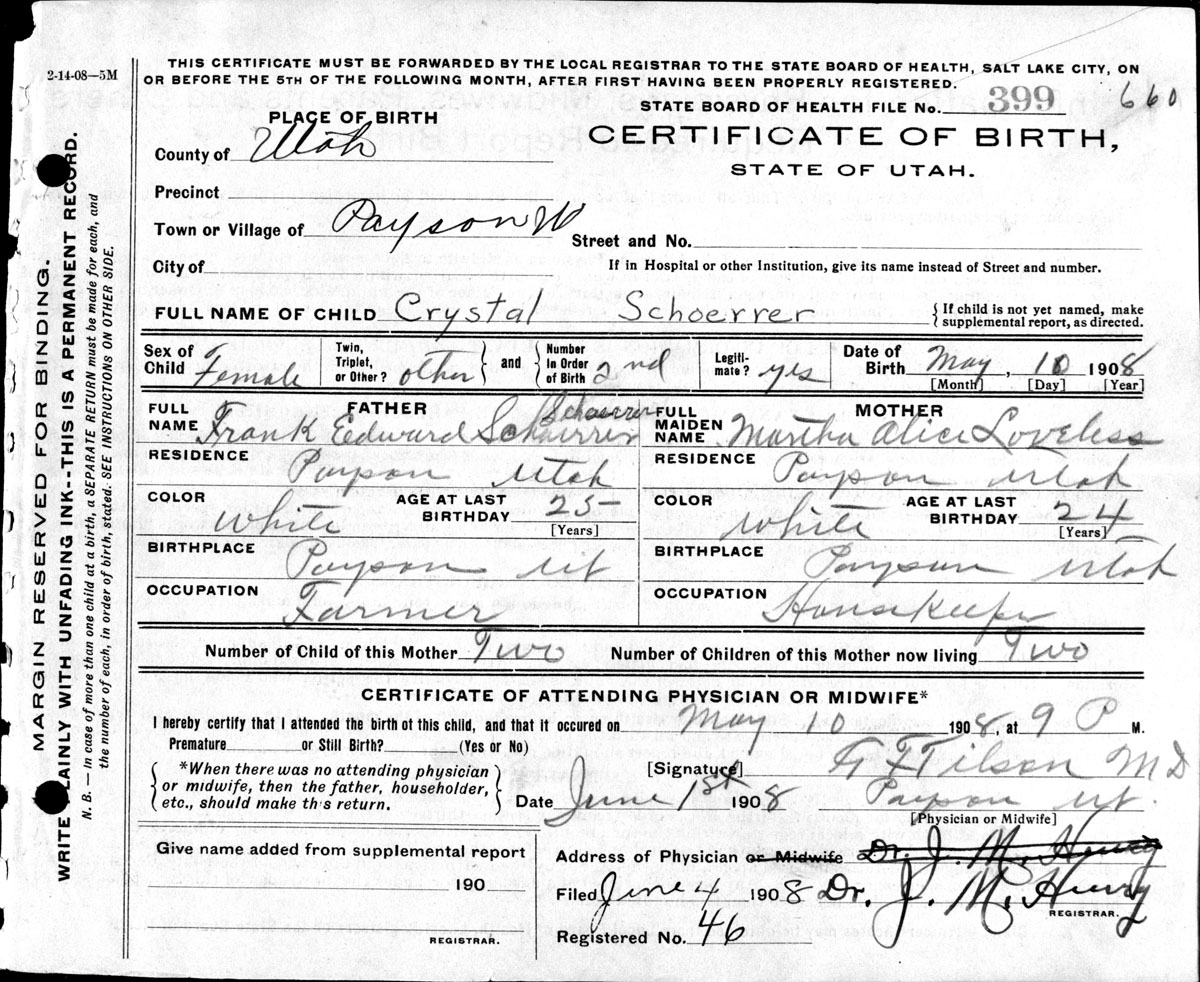 2-14-08—5M
THIS CERTIFICATE MUST BE FORWARDED BY THE LOCAL REGISTRAR TO THE STATE BOARD OF HEALTH, SALT LAKE CITY, ON
OR BEFORE THE 5TH OF THE FOLLOWING MONTH, AFTER FIRST HAVING BEEN PROPERLY REGISTERED.
STATE BOARD OF HEALTH FILE No. 399 660
PLACE OF BIRTH
CERTIFICATE OF BIRTH,
STATE OF UTAH.
County of Utah
Precinct
Town or Village of Payson
Street and No.
City of
If in Hospital or other Institution, give its name instead of Street and number.
FULL NAME OF CHILD Crystal Schoerrer
{ If child is not yet named, make
supplemental report, as directed.
Sex of Child Female
Twin, Triplet, or Other? other } and { Number in Order of Birth 2nd
Legiti-mate? yes
Date of Birth May, 10 1908
[Month] [Day] [Year]
FATHER
FULL NAME Frank Eedward Schaerrer
MOTHER
FULL MAIDEN NAME Martha Alice Loveless
RESIDENCE Payson Utah
RESIDENCE Payson Utah
COLOR White
AGE AT LAST BIRTHDAY 25
[Years]
COLOR White
AGE AT LAST BIRTHDAY 24
[Years]
BIRTHPLACE Payson Ut
BIRTHPLACE Payson Utah
OCCUPATION Farmer
OCCUPATION HouseKeeper
Number of Child of this Mother Two Number of Children of this Mother now living Two
CERTIFICATE OF ATTENDING PHYSICIAN OR MIDWIFE*
I hereby certify that I attended the birth of this child, and that it occured on May 10 1908, at 9 P M.
Premature or Still Birth? (Yes or No)
{ *When there was no attending physician
or midwife, then the father, householder,
etc., should make this return. }
[Signature] Tilson MD
Date June 1st 1908 Payson Ut.
[Physician or Midwife]
Give name added from supplemental report
190
REGISTRAR.
Address of Physician or Midwife Dr. J. M. Henry
Filed June 4 1908 Dr. J. M. Henry
REGISTRAR.
Registered No. 46
MARGIN RESERVED FOR BINDING.
WRITE PLAINLY WITH UNFADING INK--THIS IS A PERMANENT RECORD.
N. B.—In case of more than one child at a birth, a SEPARATE RETURN must be made for each, and
the number of each, in order of birth, stated. SEE INSTRUCTIONS ON OTHER SIDE.